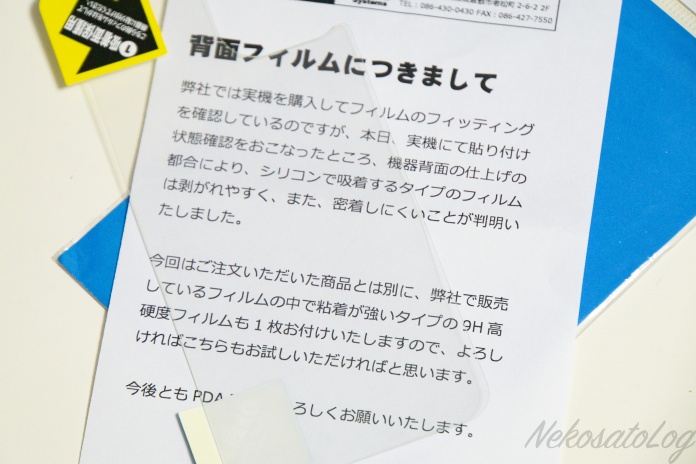 Systems
2-6-22 2F
TEL : 086-430-0430 FAX : 086-427-7550
❶吸着面保護用
背面フィルムにつきまして
弊社では実機を購入してフィルムのフィッティング
を確認しているのですが、本日、実機にて貼り付け
状態確認をおこなったところ、機器背面の仕上げの
都合により、シリコンで吸着するタイプのフィルム
は剥がれやすく、また、密着しにくいことが判明い
たしました。
今回はご注文いただいた商品とは別に、弊社で販売
しているフィルムの中で粘着が強いタイプの 9H 高
硬度フィルムも 1 枚お付けいたしますので、よろし
ければこちらもお試しいただければと思います。
今後とも PDA ろしくお願いいたします。
NekosatoLog